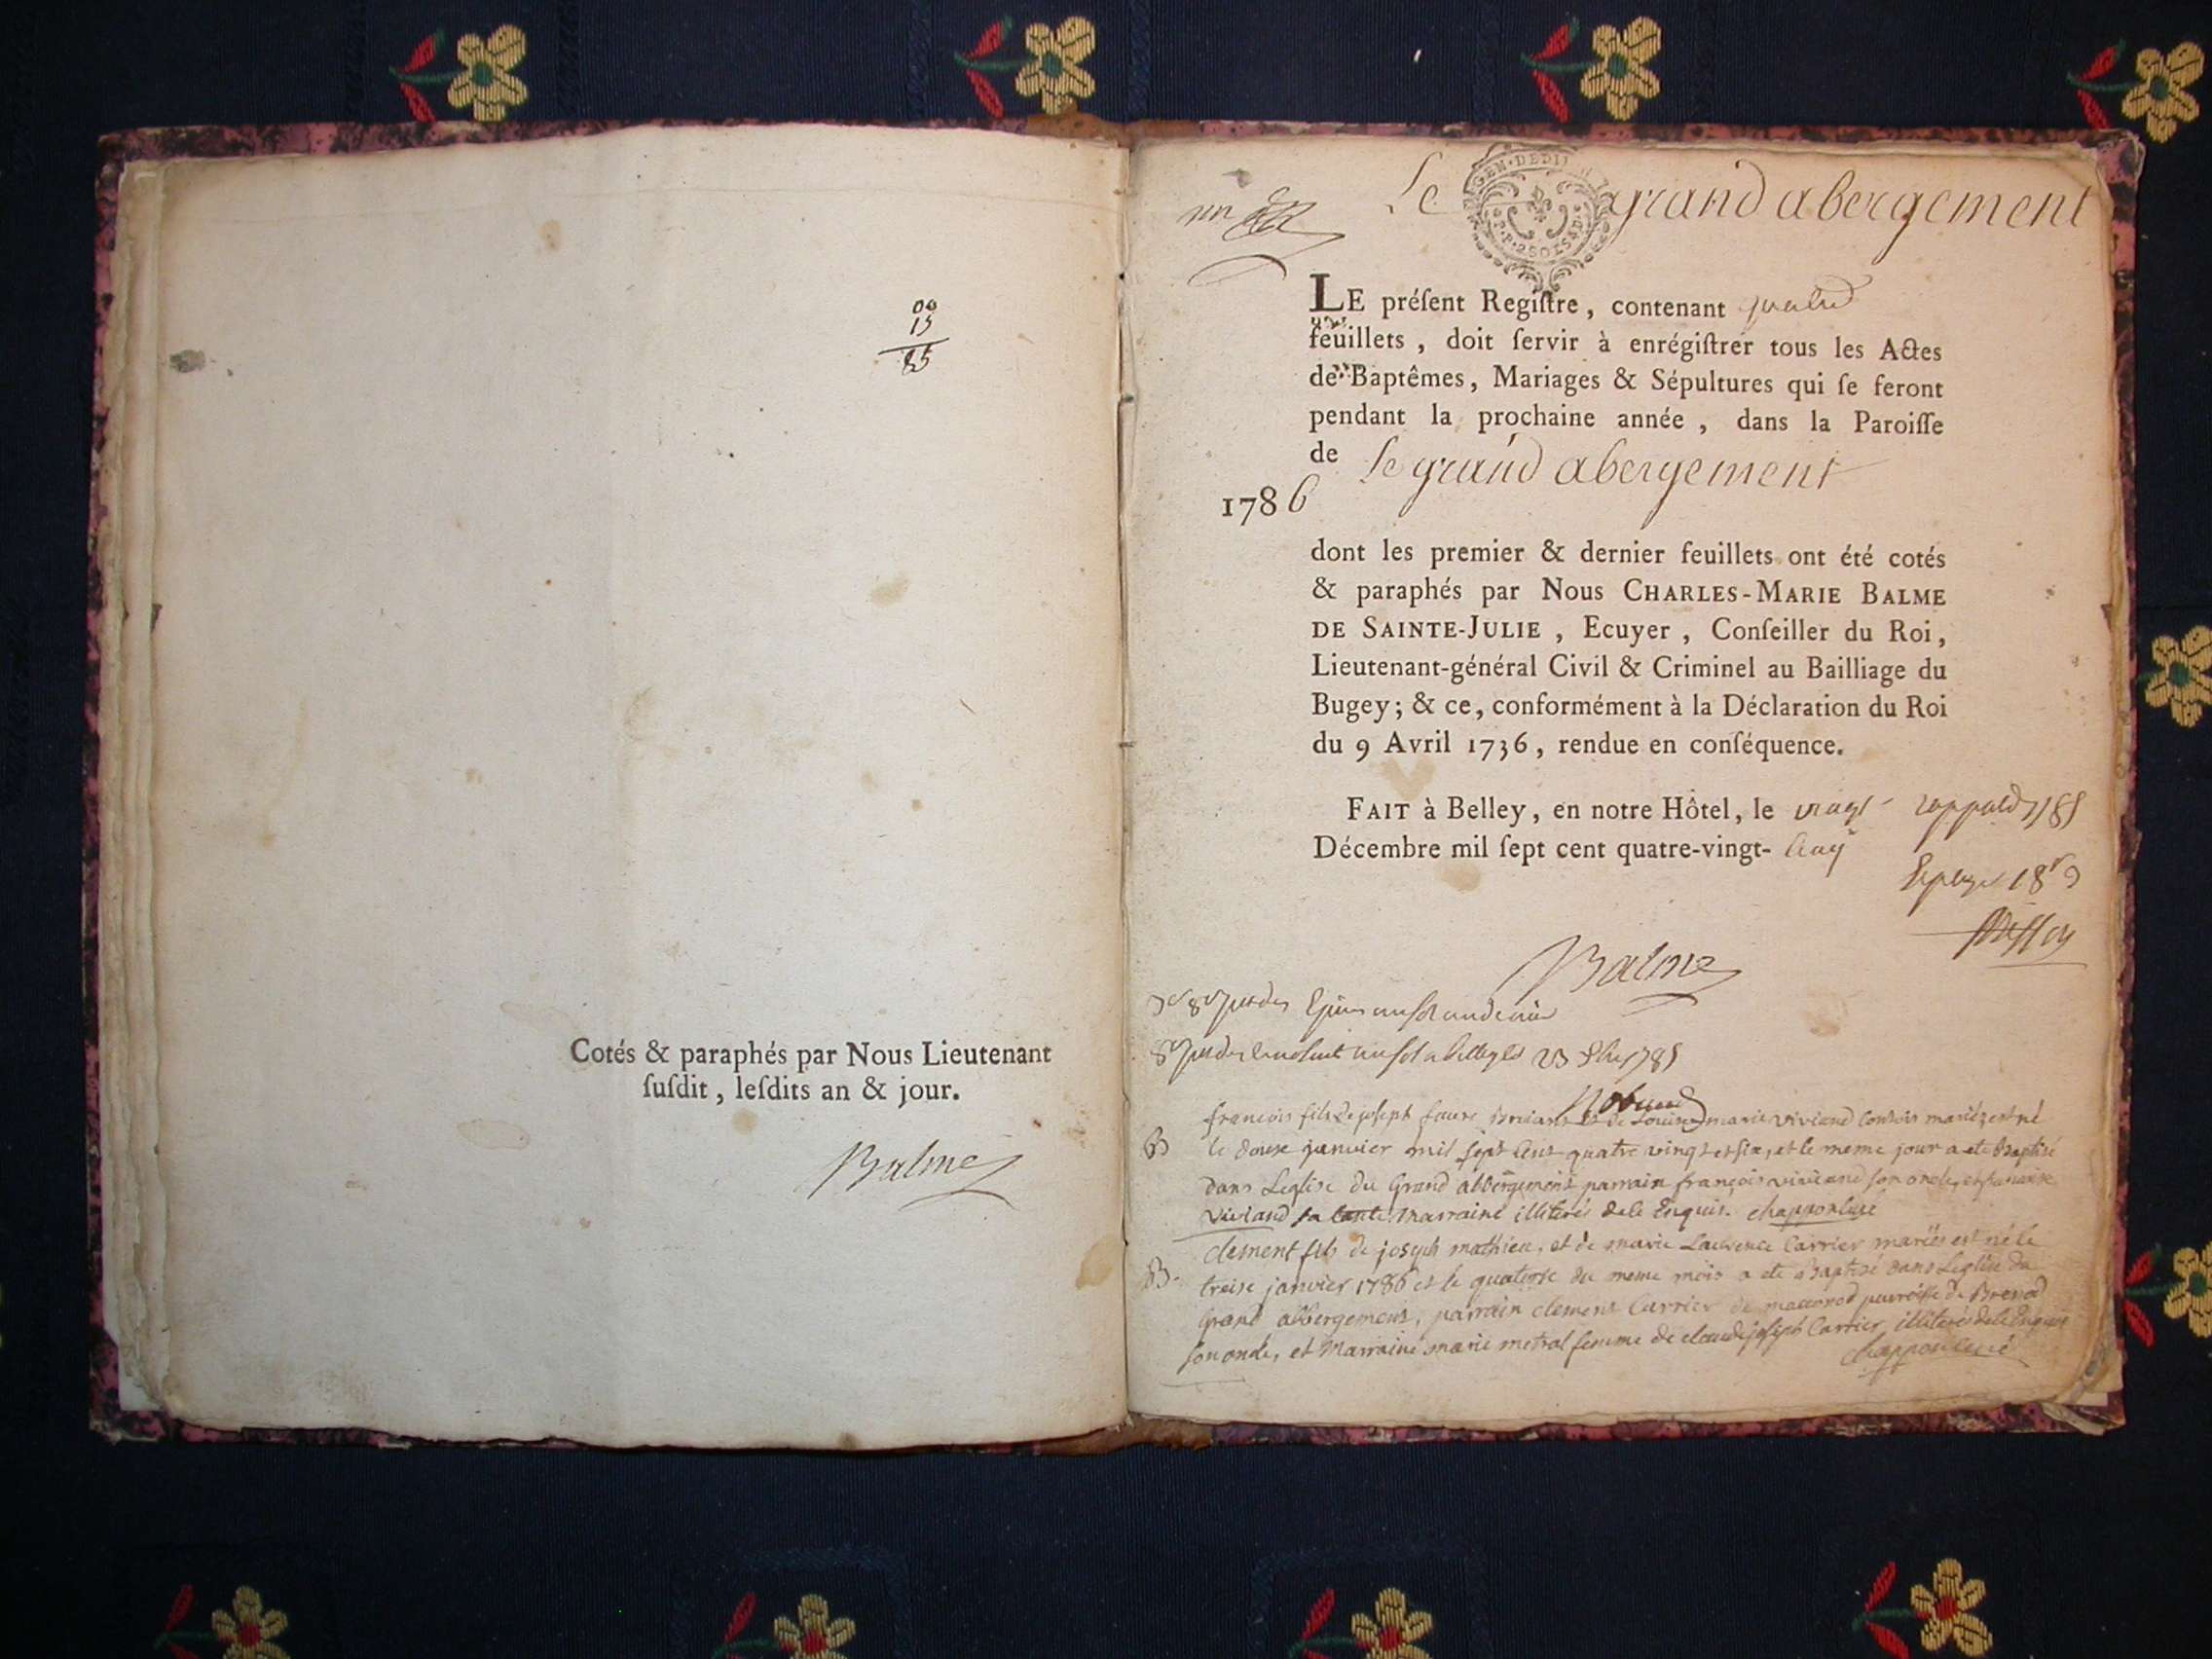 00
15
85
Cotés & paraphés par Nous Lieutenant
ſuſdit, leſdits an & jour.
Balme
un
Le grand abergement
GEN. DEDIJ
2 SOLS
LE préſent Regiſtre, contenant quatre
feuillets, doit ſervir à enrégiſtrer tous les Actes
de Baptêmes, Mariages & Sépultures qui ſe feront
pendant la prochaine année, dans la Paroiſſe
de le grand abergement
1786
dont les premier & dernier feuillets ont été cotés
& paraphés par Nous CHARLES-MARIE BALME
DE SAINTE-JULIE, Ecuyer, Conſeiller du Roi,
Lieutenant-général Civil & Criminel au Bailliage du
Bugey; & ce, conformément à la Déclaration du Roi
du 9 Avril 1736, rendue en conſéquence.
FAIT à Belley, en notre Hôtel, le vingt
Décembre mil ſept cent quatre-vingt- cinq
Balme
23 1785
francois fils de joseph faure et de Louise marie viviand mariéz est né
B le douse janvier mil sept cens quatre vingt et six, et le meme jour a ete Baptisé
dans Leglise du Grand abbergement parrain françois viviand son oncle, et
viviand sa tante Marraine illiterés de ce Enquis. chappon curé
clement fils de joseph mathieu, et de marie Laurence Carrier mariés est né le
B. treise janvier 1786 et le quatorse du meme mois a ete Baptisé dans Leglise du
Grand abbergement, parrain clement Carrier de parroisse de Brenod
son oncle, et Marraine marie metral femme de claude joseph Carrier illiterés de ce Enquis
chappon curé